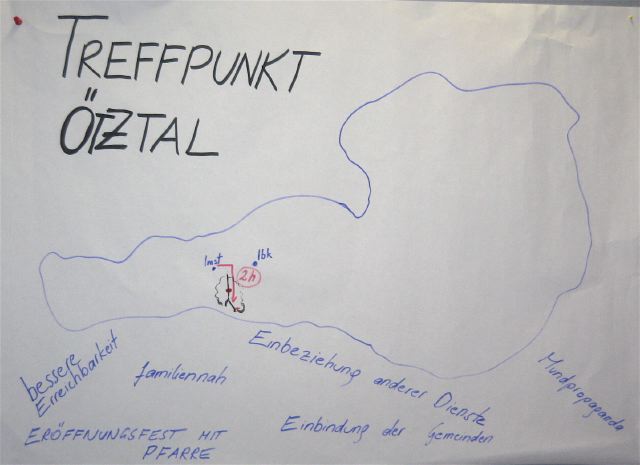 TREFFPUNKT
ÖTZTAL
Imst
Ibk
2h
bessere
Erreichbarkeit
familiennah
Einbeziehung anderer Dienste
Mundpropaganda
ERÖFFNUNGSFEST MIT
PFARRE
Einbindung der Gemeinden